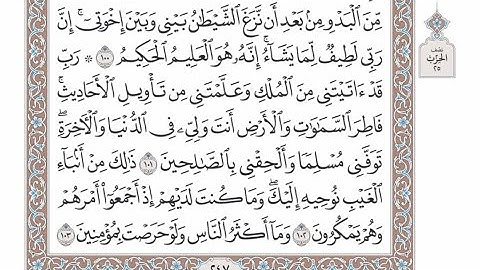 مِّنَ ٱلۡبَدۡوِ مِنۢ بَعۡدِ أَن نَّزَغَ ٱلشَّيۡطَٰنُ بَيۡنِي وَبَيۡنَ إِخۡوَتِيٓۚ إِنَّ
رَبِّي لَطِيفٞ لِّمَا يَشَآءُۚ إِنَّهُۥ هُوَ ٱلۡعَلِيمُ ٱلۡحَكِيمُ ١٠٠ ۞ رَبِّ
قَدۡ ءَاتَيۡتَنِي مِنَ ٱلۡمُلۡكِ وَعَلَّمۡتَنِي مِن تَأۡوِيلِ ٱلۡأَحَادِيثِۚ
فَاطِرَ ٱلسَّمَٰوَٰتِ وَٱلۡأَرۡضِ أَنتَ وَلِيِّۦ فِي ٱلدُّنۡيَا وَٱلۡأٓخِرَةِۖ
تَوَفَّنِي مُسۡلِمٗا وَأَلۡحِقۡنِي بِٱلصَّٰلِحِينَ ١٠١ ذَٰلِكَ مِنۡ أَنۢبَآءِ
ٱلۡغَيۡبِ نُوحِيهِ إِلَيۡكَۖ وَمَا كُنتَ لَدَيۡهِمۡ إِذۡ أَجۡمَعُوٓاْ أَمۡرَهُمۡ
وَهُمۡ يَمۡكُرُونَ ١٠٢ وَمَآ أَكۡثَرُ ٱلنَّاسِ وَلَوۡ حَرَصۡتَ بِمُؤۡمِنِينَ ١٠٣
٢٤٧
نصف
الحزب
٢٥